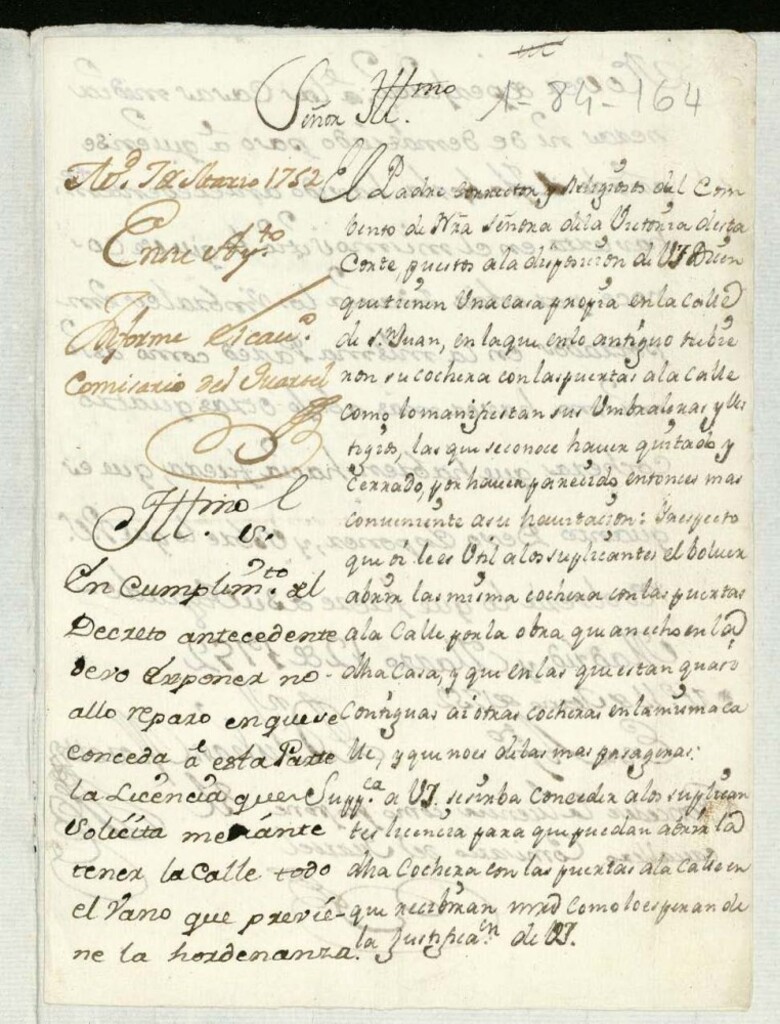 Señor Illmo.
1-84-164
Md. 7 de Marzo 1752
En su Ayto.
Informe el cavo.
Comisario del Quartel
Illmo. S.
En Cumplimto. del
Decreto antecedente
devo exponer no
allo reparo en que se
conceda â esta Parte
la Licencia que
Solicita mediante
tener la Calle todo
el Vano que previe-
ne la hordenanza.
El Padre Corrector y Religiosos del Com
bento de Nra Señora de la Victoria desta
Corte, puestos a la disposicion de VI Dicen
que tienen Una casa propia en la Calle
de Sn. Juan, en la que en lo antiguo tubie
ron su cochera con las puertas a la calle
como lo manifiestan sus Umbraleras y Ues
tigios, las que se conoce haver quitado y
Cerrado, por haver parecido entonces mas
conveniente a su havitacion: Y respecto
que oi le es Util a los suplicantes el bolver
abrir las misma cochera con las puertas
a la Calle por la obra que an echo en la
dha Casa, y que en las que estan
Contiguas ai otras cocheras en la misma ca
lle, y que no es de las mas pasageras:
Suppca. a VI. se sirba Conceder a los suplican
tes licencia para que puedan abrir la
dha Cochera con las puertas a la Calle en
que reciviran mrd como lo esperan de
la Justificaen. de VI.